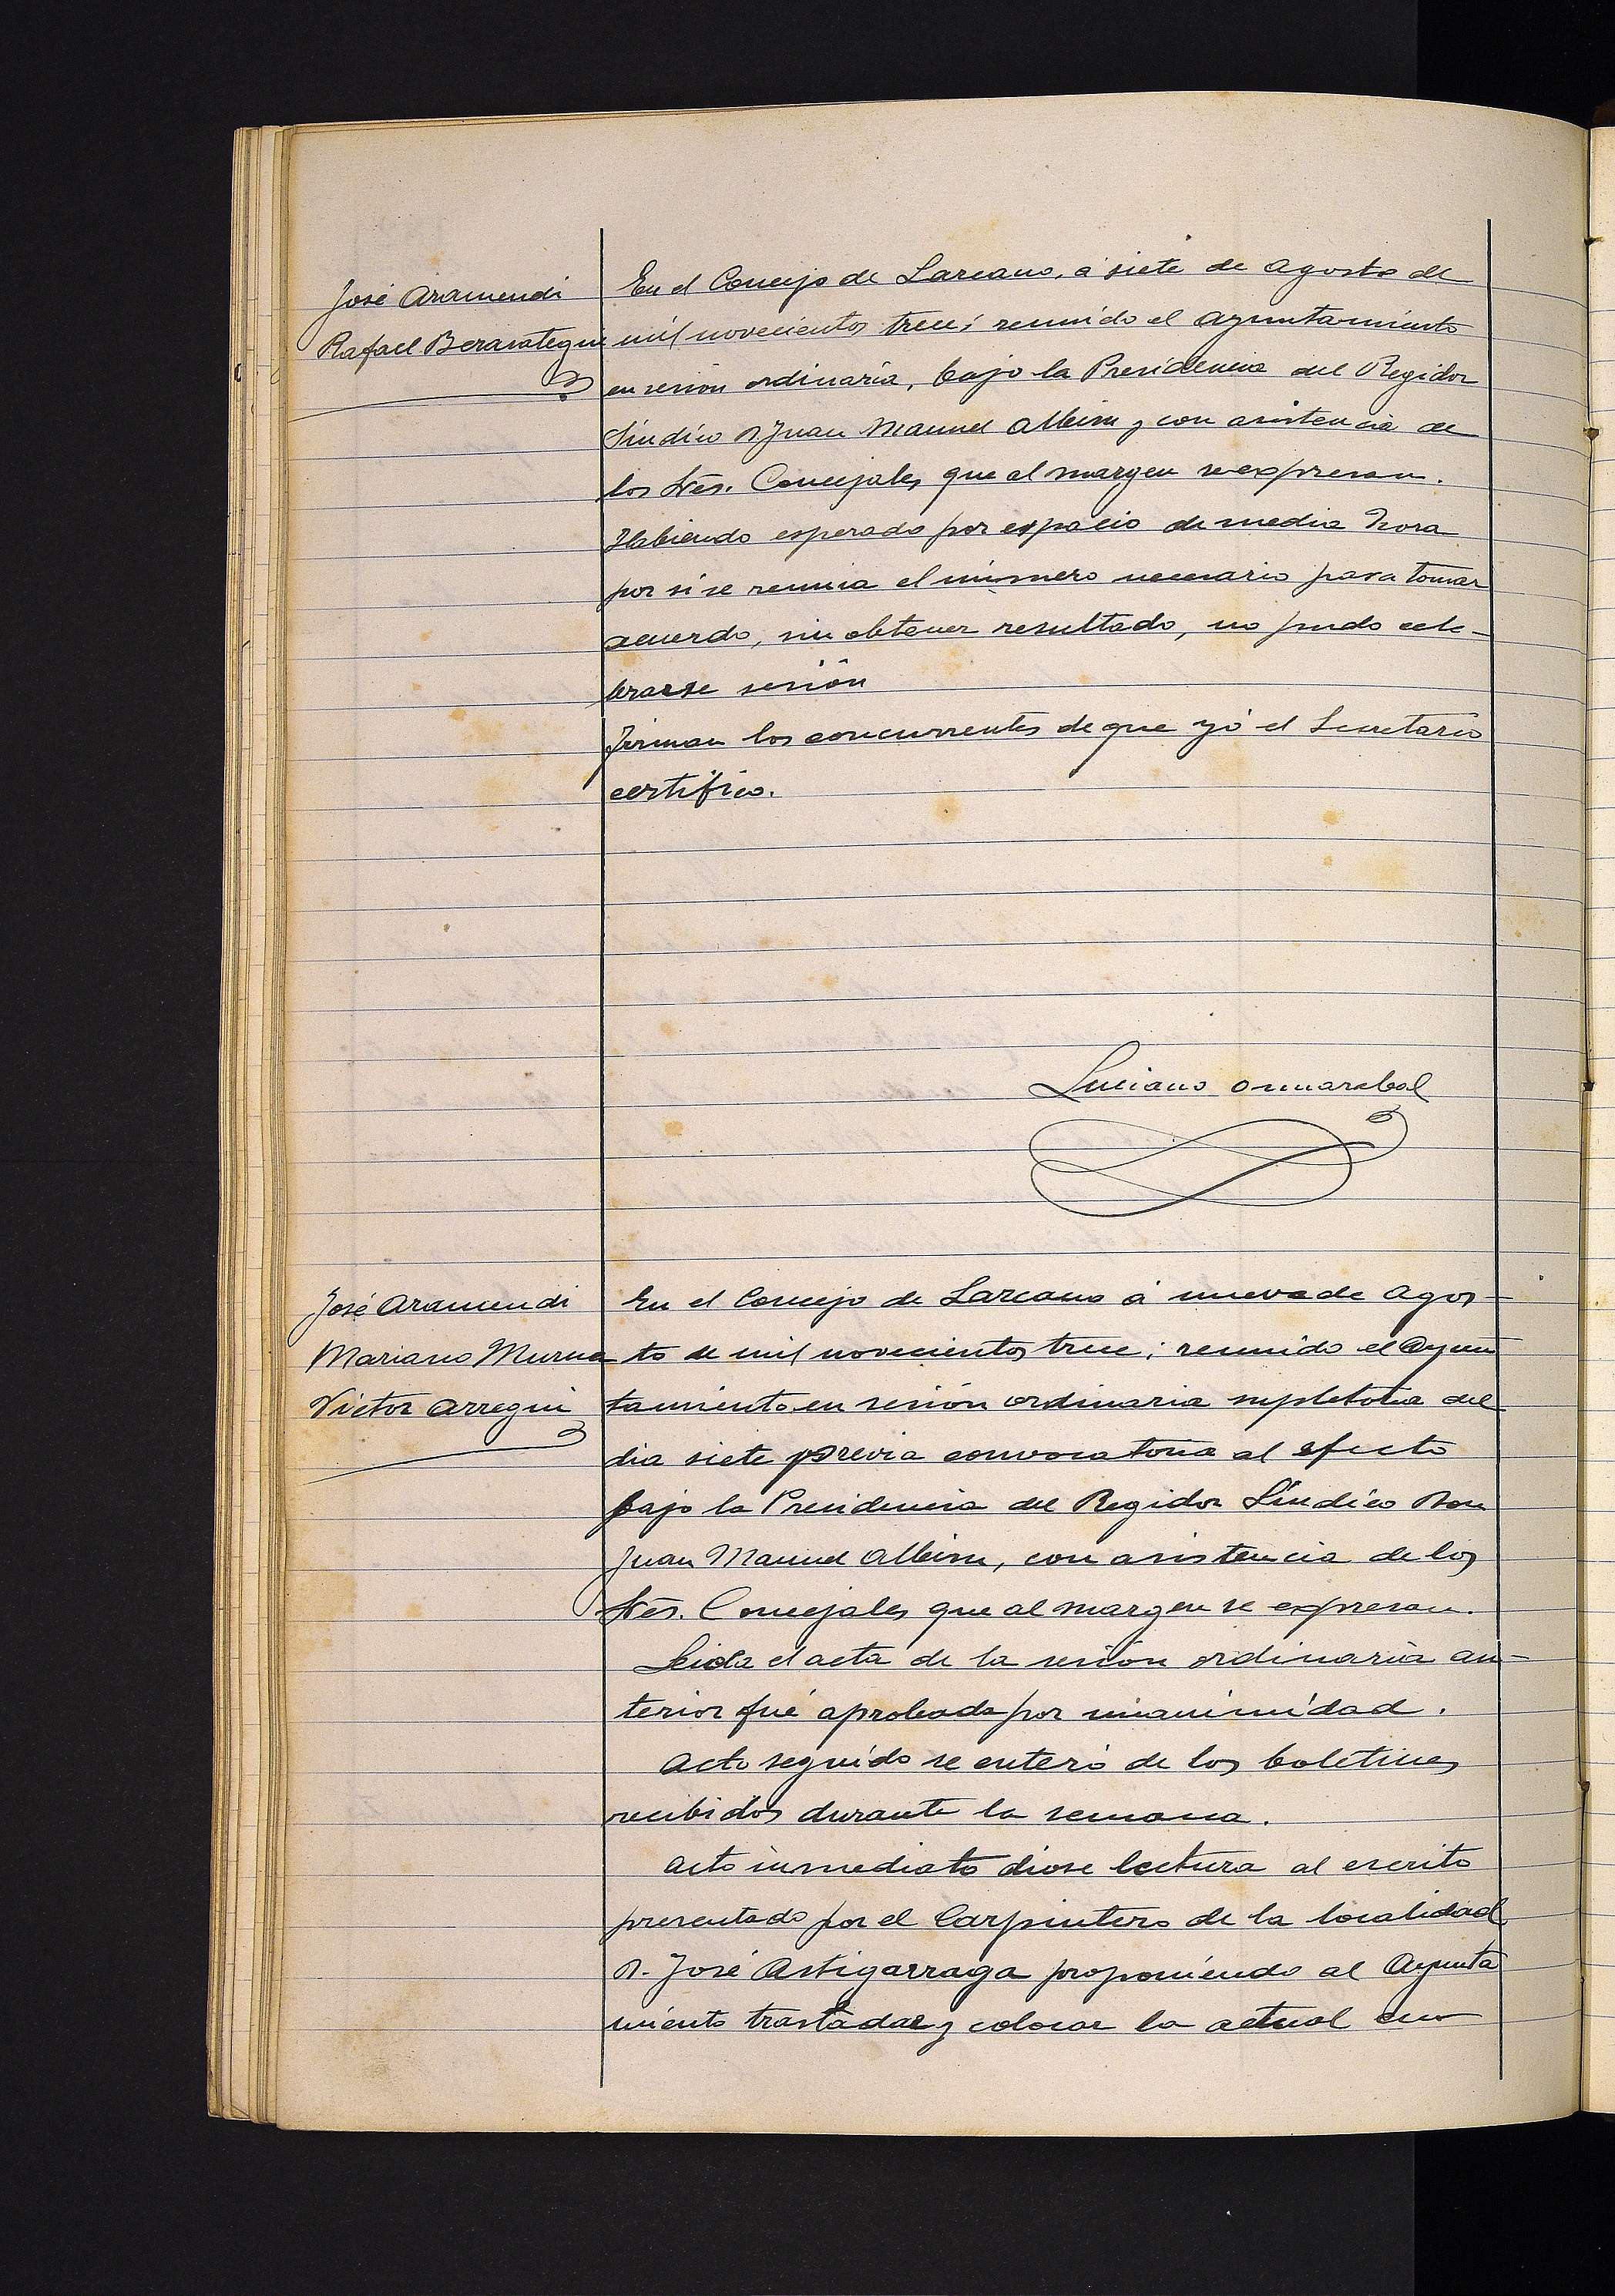 José Aramendi
Rafael Berasategui
En el Concejo de Lazcano, á siete de Agosto de
mil novecientos trece; reunido el Ayuntamiento
en sesión ordinaria, bajo la Presidencia del Regidor
Síndico D Juan Manuel Albisu y con asistencia de
los Sres. Concejales que al margen se expresan.
Habiendo esperado por espacio de media hora
por si se reunia el número necesario para tomar
acuerdo, sin obtener resultado, no pudo cele-
brarse sesión
Firman los concurrentes de que yó el Secretario
certifico.
Luciano
José Aramendi
Mariano Murua
Victor Arregui
En el Concejo de Lazcano á nueve de Agos-
to de mil novecientos trece; reunido el Ayun
tamiento en sesión ordinaria supletoria del
dia siete previa convocatoria al efecto
bajo la Presidencia del Regidor Síndico Don
Juan Manuel Albisu, con asistencia de los
Sres. Concejales que al margen se expresan.
Leida el acta de la sesión ordinaria an-
terior fué aprobada por unanimidad.
Acto seguido se enteró de los boletines
recibidos durante la semana.
Acto inmediato diose lectura al escrito
presentado por el Carpintero de la localidad
D. José Astigarraga proponiendo al Ayunta
miento trasladar y colocar la actual